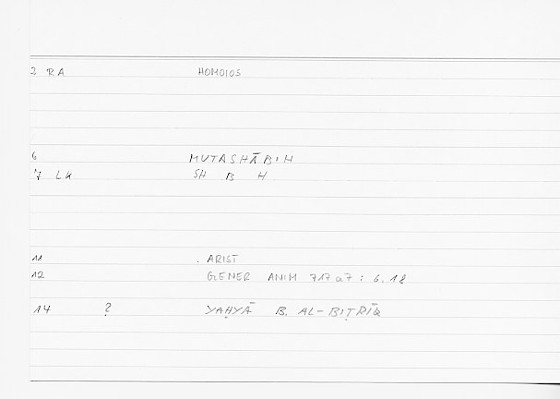 2 RA HOMOIOS
6 MUTASHĀBIH
7 LK SH B H
11 . ARIST
12 GENER ANIM 717 a 7 : 6.18
14 ? YAḤYĀ B. AL-BIṬRĪQ